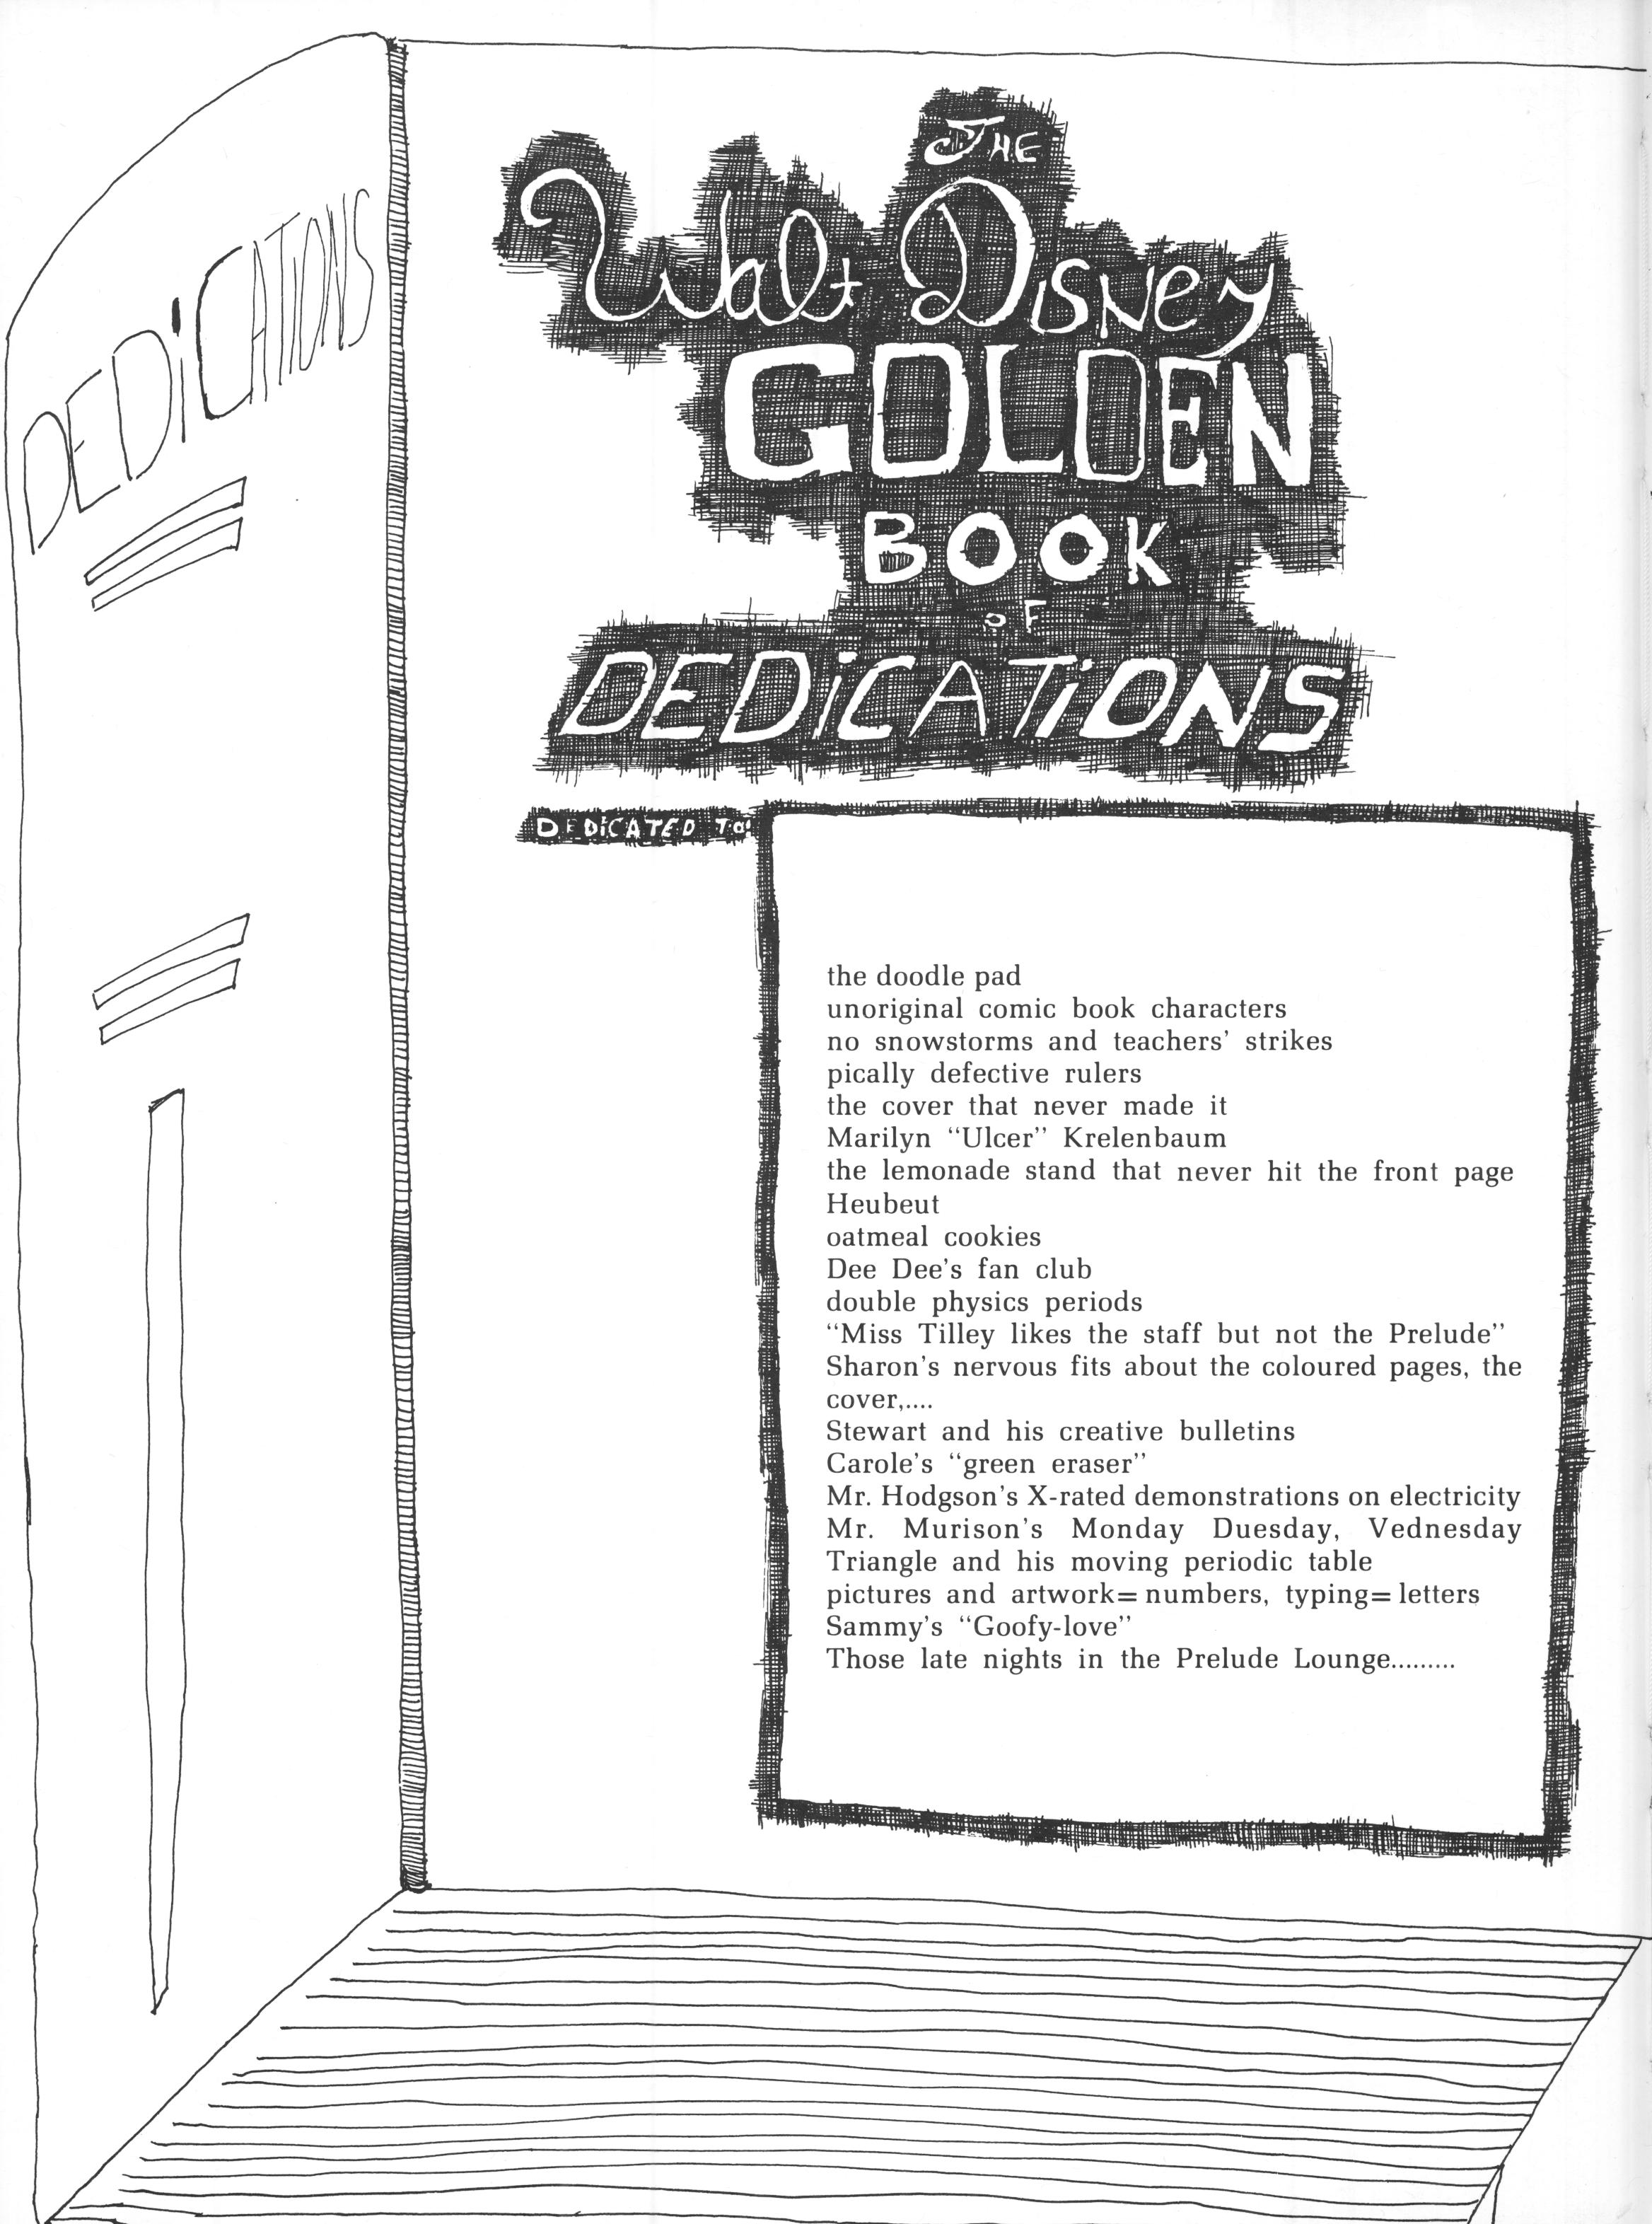 DEDiCATiONS
THE
Walt DISNEY
GOLDEN
BOOK
OF
DEDiCATiONS
DEDiCATED TO:
the doodle pad
unoriginal comic book characters
no snowstorms and teachers' strikes
pically defective rulers
the cover that never made it
Marilyn “Ulcer” Krelenbaum
the lemonade stand that never hit the front page
Heubeut
oatmeal cookies
Dee Dee's fan club
double physics periods
“Miss Tilley likes the staff but not the Prelude”
Sharon's nervous fits about the coloured pages, the
cover,....
Stewart and his creative bulletins
Carole's “green eraser”
Mr. Hodgson's X-rated demonstrations on electricity
Mr. Murison's Monday Duesday, Vednesday
Triangle and his moving periodic table
pictures and artwork= numbers, typing= letters
Sammy's “Goofy-love”
Those late nights in the Prelude Lounge.........